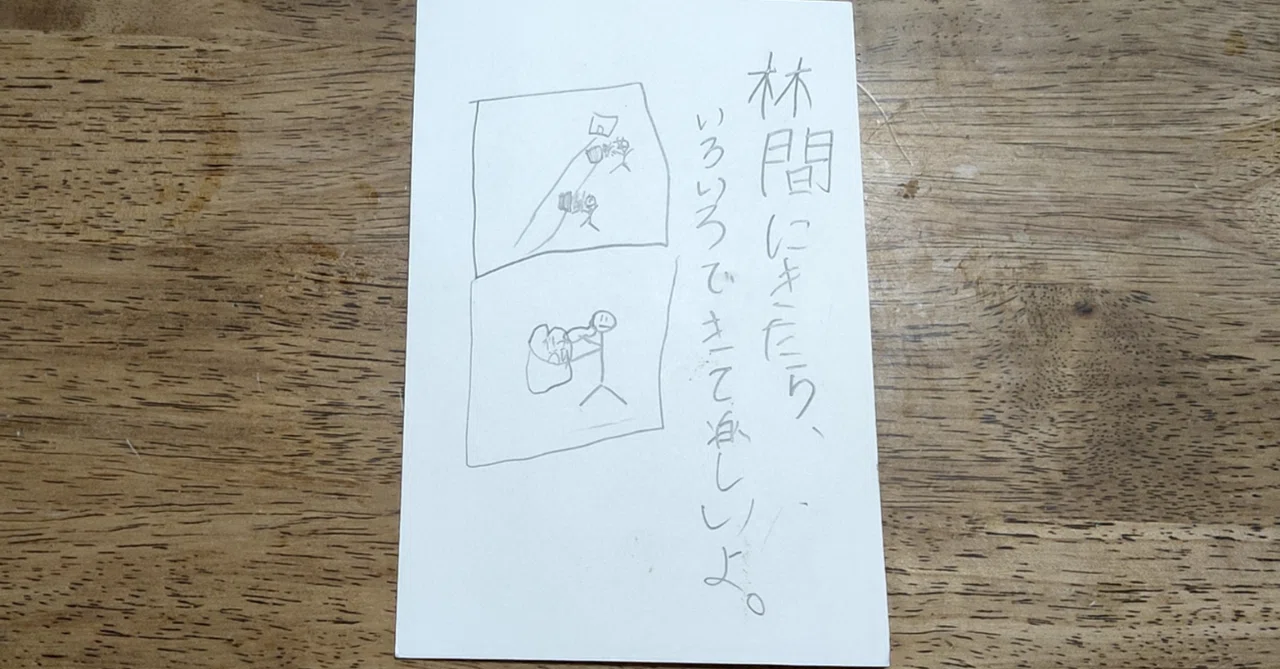 林間にきたら、
いろいろできて楽しいよ。